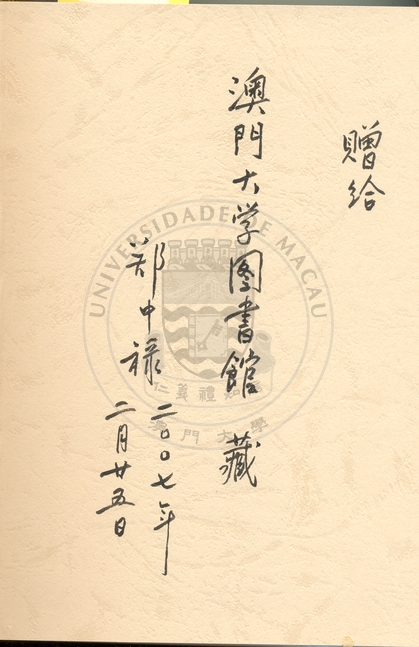 贈给
澳門大学图書館 藏
郑中禄
二〇〇七年
二月廿五日
UNIVERSIDADE DE MACAU
仁義禮知信
澳門大學